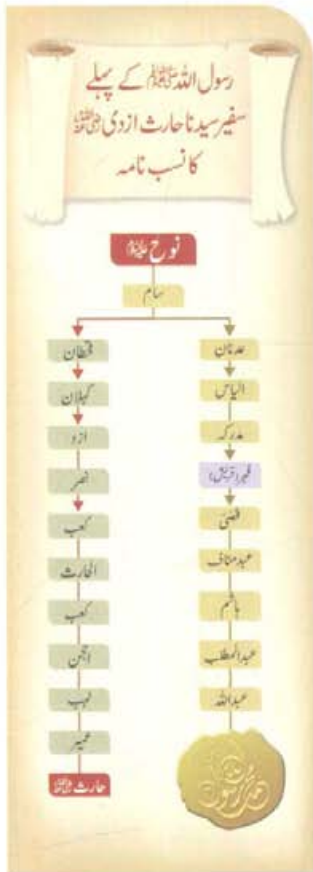 رسول اللہ ﷺ کے پہلے
سفیر سیدنا حارث ازدی رضی اللہ عنہ
کا نسب نامہ
نوح علیہ السلام
سام
عدنان
الیاس
مدرکہ
فہر (قریش)
قصی
عبد مناف
ہاشم
عبدالمطلب
عبداللہ
محمد رسول اللہ
قحطان
کہلان
ازد
نصر
کعب
الحارث
کعب
احجن
لہب
عمیر
حارث رضی اللہ عنہ